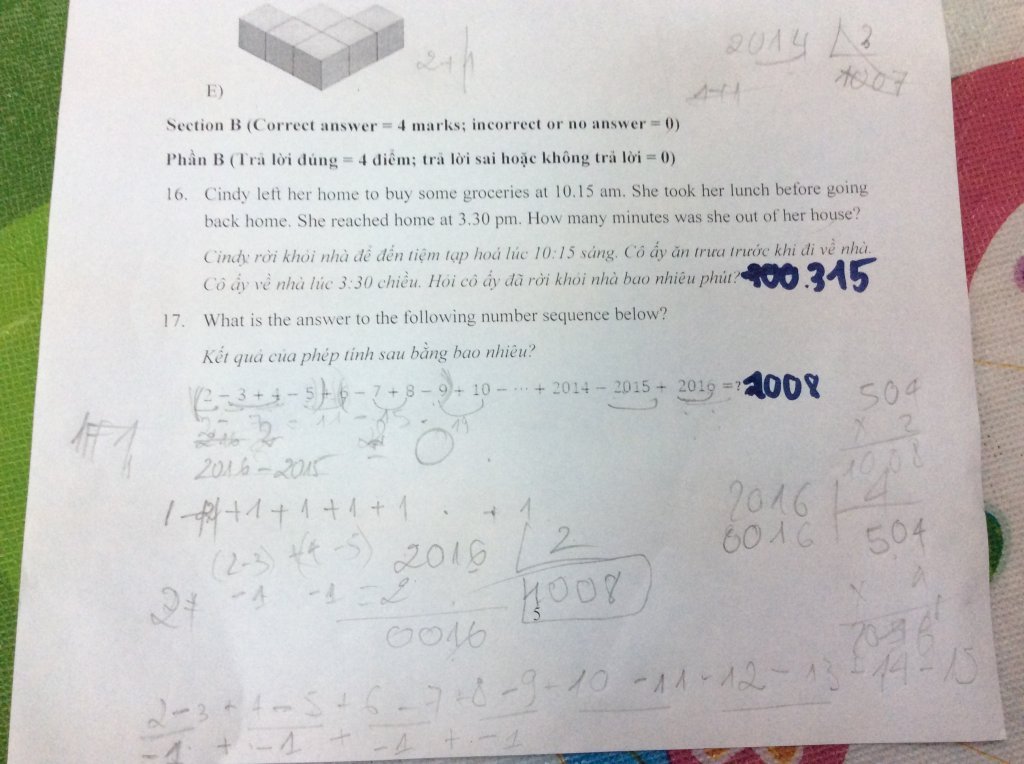 2014 3
2+
1007
E)
Section B (Correct answer = 4 marks; incorrect or no answer = 0)
Phần B (Trả lời đúng = 4 điểm; trả lời sai hoặc không trả lời = 0)
16. Cindy left her home to buy some groceries at 10.15 am. She took her lunch before going
back home. She reached home at 3.30 pm. How many minutes was she out of her house?
Cindy rời khỏi nhà để đến tiệm tạp hoá lúc 10:15 sáng. Cô ấy ăn trưa trước khi đi về nhà.
Cô ấy về nhà lúc 3:30 chiều. Hỏi cô ấy đã rời khỏi nhà bao nhiêu phút? 315
17. What is the answer to the following number sequence below?
Kết quả của phép tính sau bằng bao nhiêu?
2 − 3 + 4 − 5 + 6 − 7 + 8 − 9 + 10 − ⋯ + 2014 − 2015 + 2016 =? 1008
504
x 2
1008
2016 − 2015
2016 4
0016 504
+ 1 + 1 + 1 + 1 . + 1
(2-3) + (4 - 5) 2016 2
-1 -1 = 2 1008
5
0016
2 - 3 + 4 - 5 + 6 - 7 + 8 - 9 + 10 - 11 - 12 - 13 - 14 - 15
-1 + -1 + -1 + -1